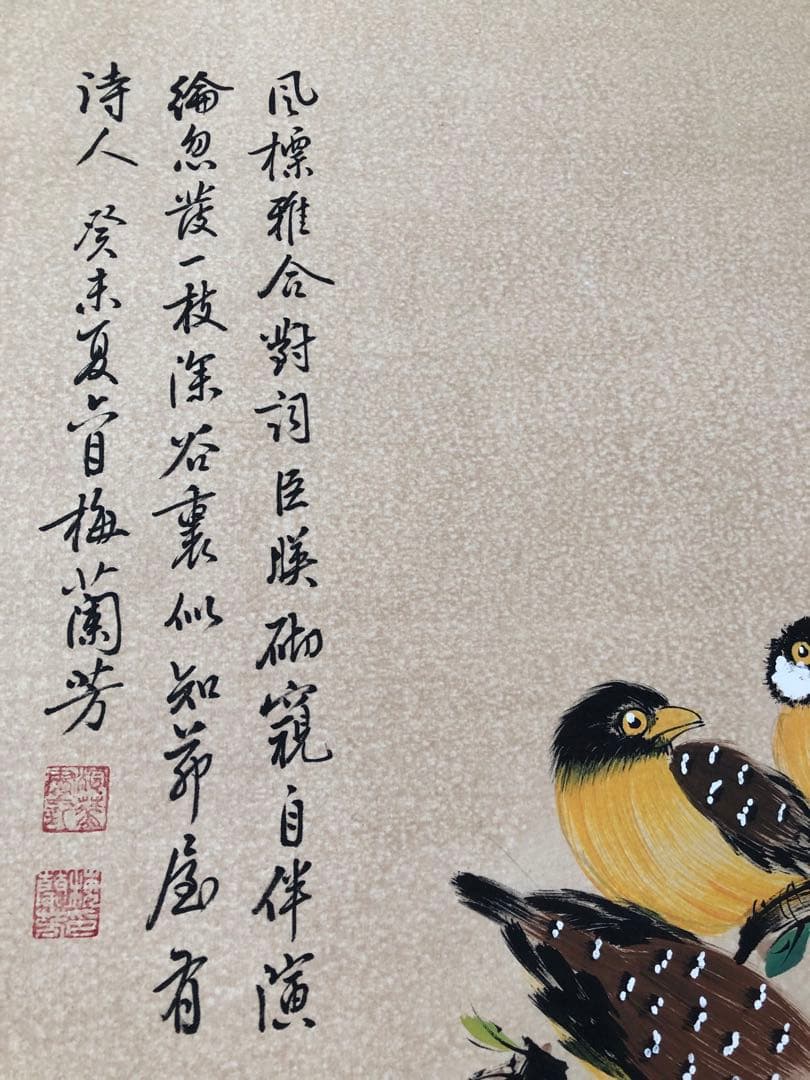 风標雅合對詞臣映砌窺自伴演
綸忽發一枝深谷裏似知茅屋有
诗人 癸未夏六月梅蘭芳